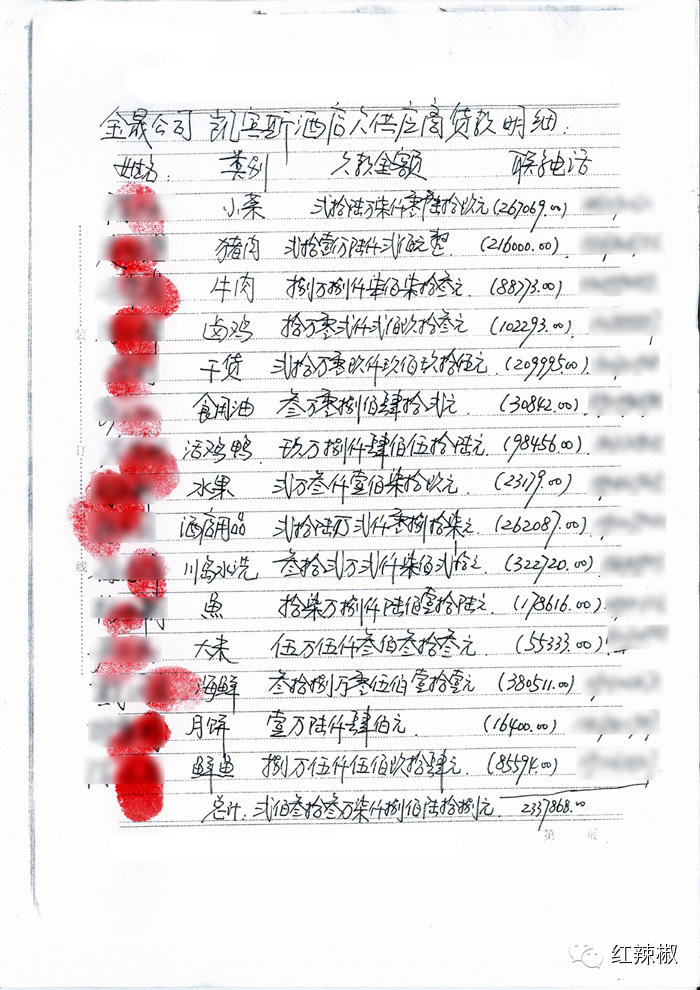 金晟公司 凯宾斯酒店欠供应商货款明细:
姓名: 类别 欠款金额 联系电话
小菜 贰拾陆万柒仟零陆拾玖元(267069.00)
猪肉 贰拾壹万陆仟 元整 (216000.00)
牛肉 捌万捌仟柒佰柒拾叁元 (88773.00)
卤鸡 拾万零贰仟贰佰玖拾叁元 (102293.00)
干货 贰拾万零玖仟玖佰玖拾伍元 (209995.00)
食用油 叁万零捌佰肆拾贰元 (30842.00)
活鸡鸭 玖万捌仟肆佰伍拾陆元 (98456.00)
水果 贰万叁仟壹佰柒拾玖元 (23179.00)
酒店用品 贰拾陆万贰仟零捌拾柒元 (262087.00)
川岛水洗 叁拾贰万贰仟柒佰贰拾元 (322720.00)
鱼 拾柒万捌仟陆佰壹拾陆元 (178616.00)
大米 伍万伍仟叁佰叁拾叁元 (55333.00)
海鲜 叁拾捌万零伍佰壹拾壹元 (380511.00)
月饼 壹万陆仟肆佰元 (16400.00)
鲜鱼 捌万伍仟伍佰玖拾肆元 (85594.00)
总计:贰佰叁拾叁万柒仟捌佰陆拾捌元 2337868.00
第 页
装
订
线
红辣椒